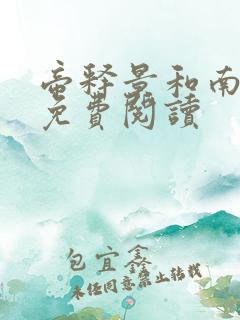 壶释景和南
免費閱讀
包宜鑫
未经同意禁止转载